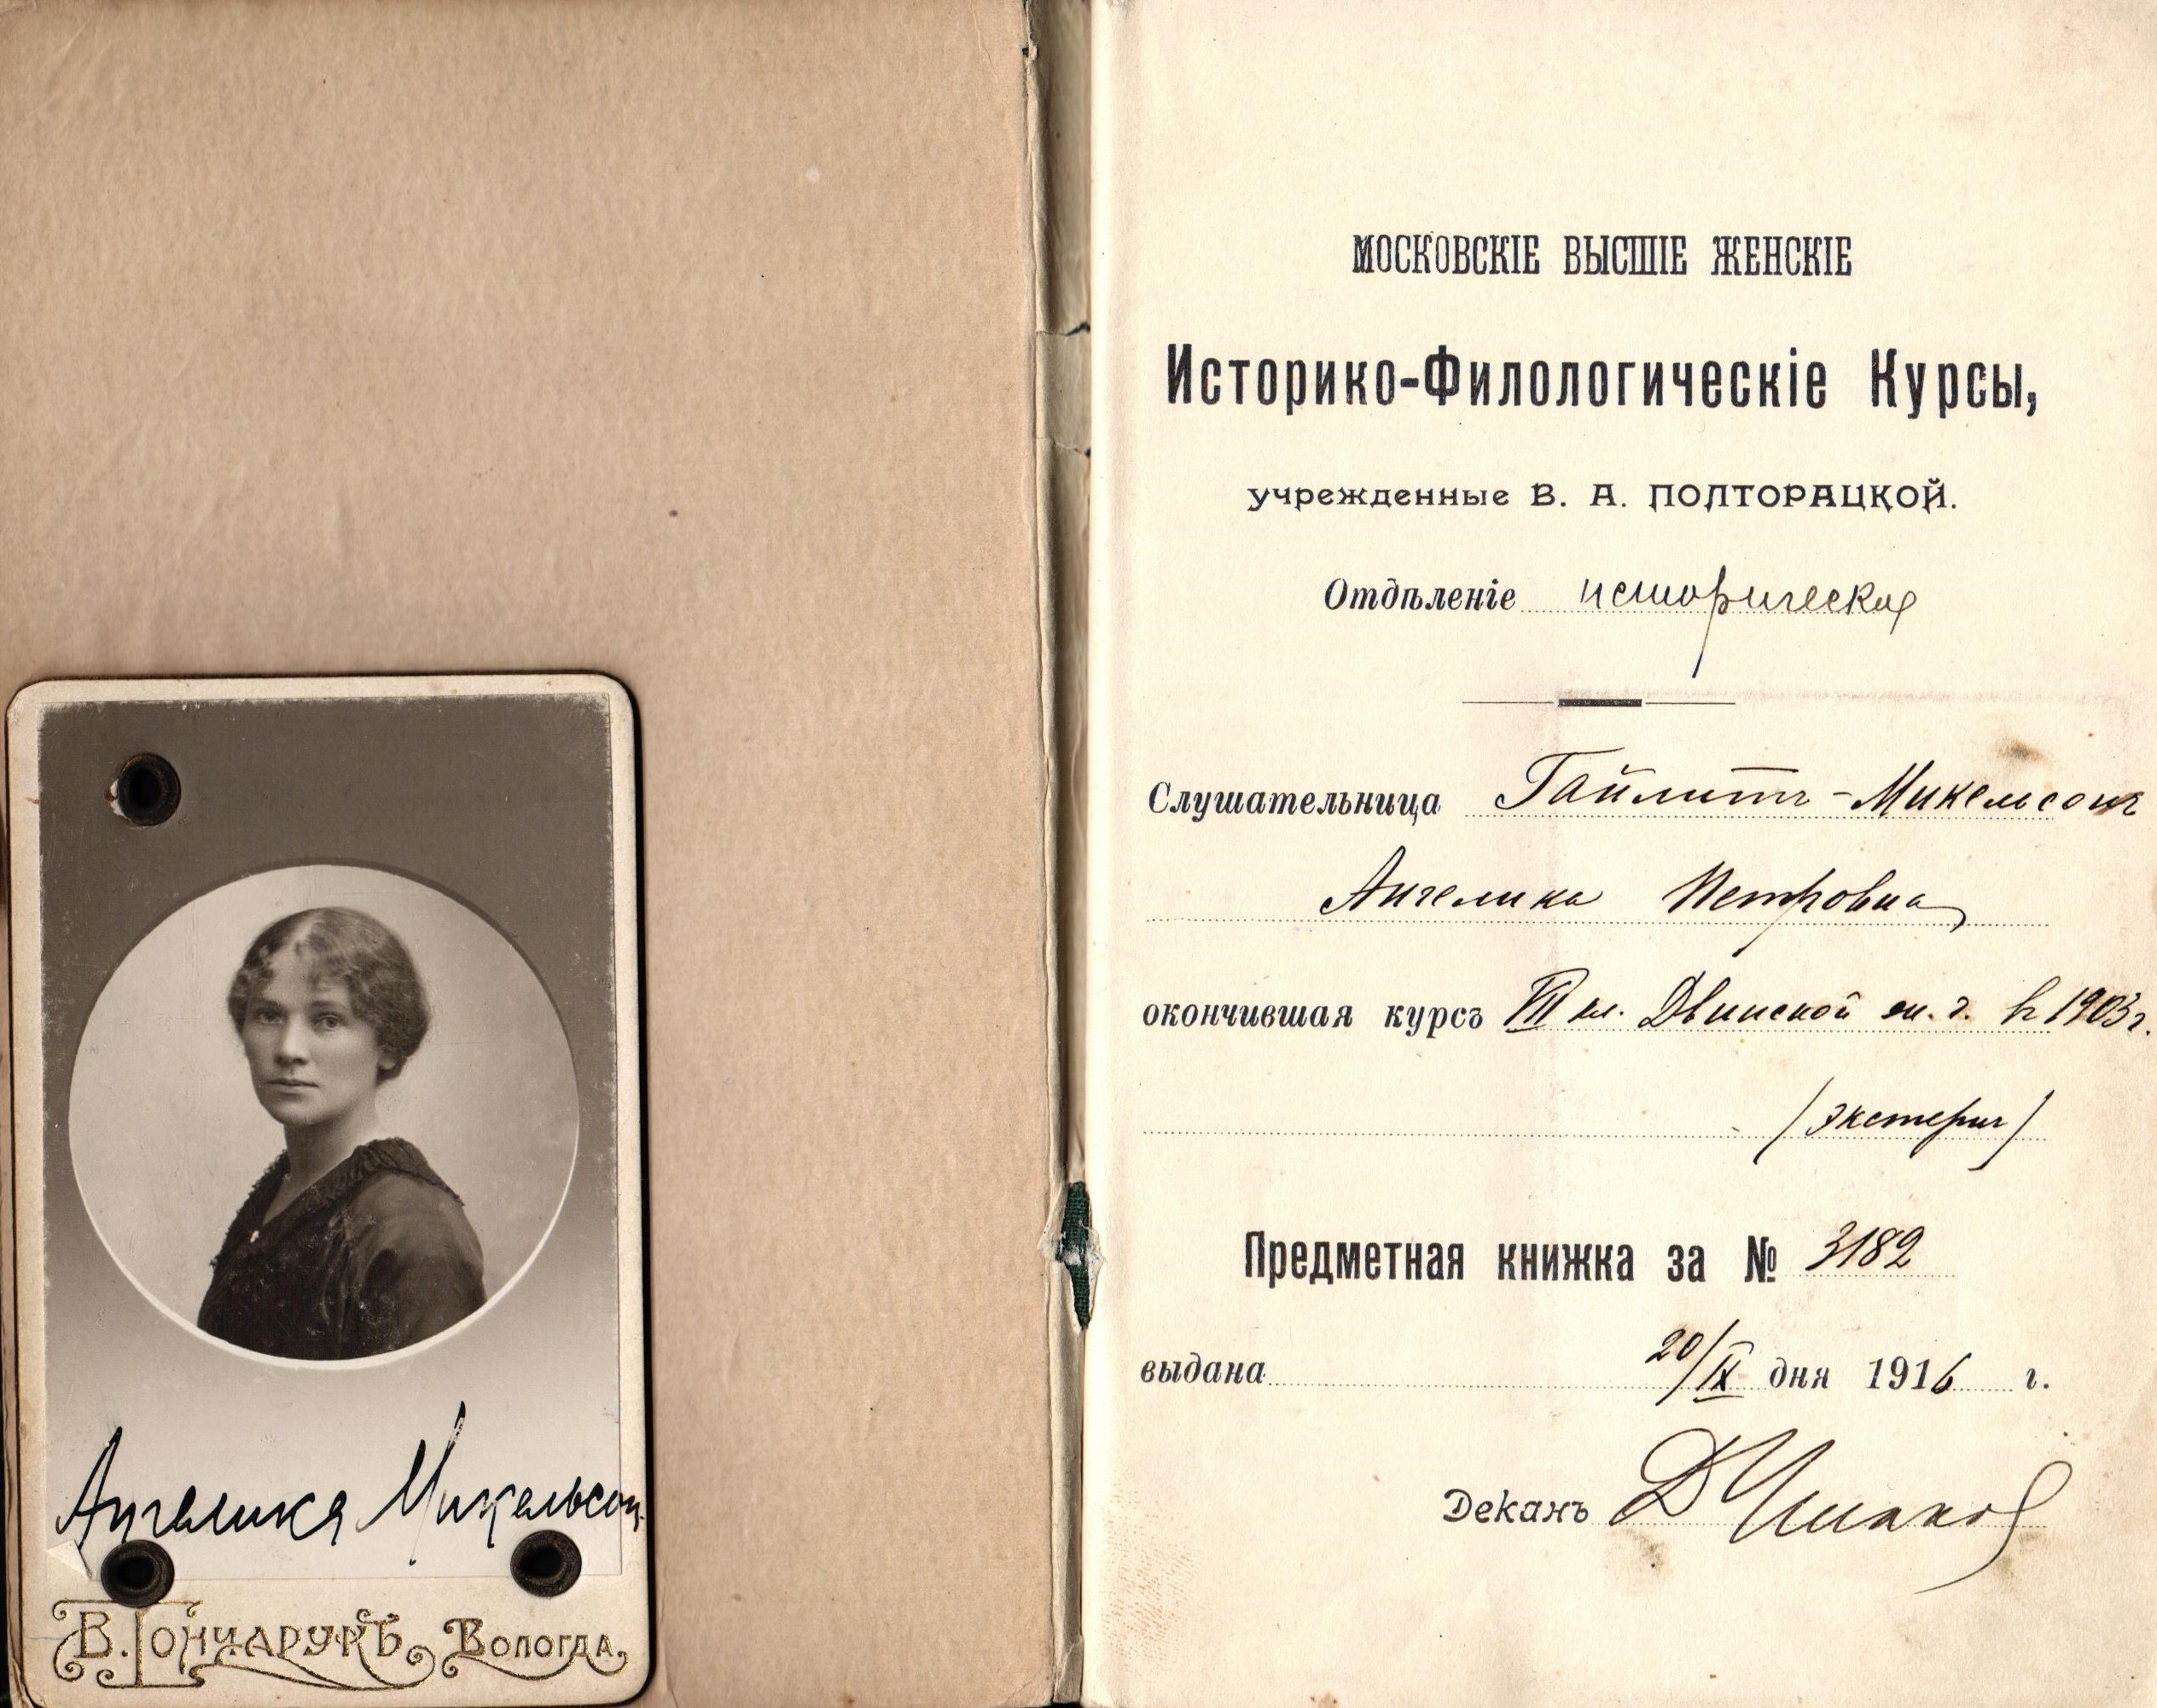 Ангелика Микельсон.
В. Гончарукъ Вологда
МОСКОВСКІЕ ВЫСШІЕ ЖЕНСКІЕ
Историко-Филологическіе Курсы,
учрежденные В. А. ПОЛТОРАЦКОЙ.
Отдѣленіе историческое
Слушательница Гайлитъ-Микельсонъ
Ангелика Петровна
окончившая курсъ VIII кл. Двинской ж. г. въ 1903 г.
(экстерн)
Предметная книжка за № 3182
выдана 20/IX дня 1916 г.
Деканъ Д